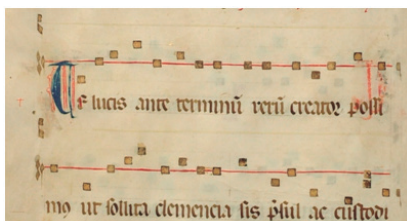 Te lucis ante terminū rerū creator posci
mꝯ ut sollita clemencia sis p̄sul ac custodi